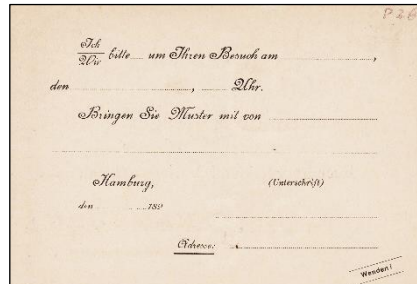 P 26
Ich
Wir bitte um Ihren Besuch am ,
den , Uhr.
Bringen Sie Muster mit von
Hamburg, (Unterschrift)
den 189
Adresse:
Wenden!